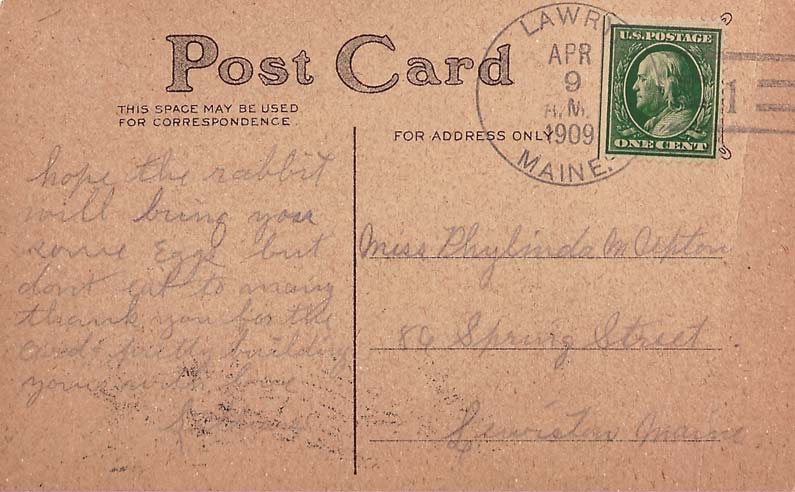 Post Card
THIS SPACE MAY BE USED
FOR CORRESPONDENCE.
FOR ADDRESS ONLY
LAWR
APR
9
A.M.
1909
MAINE.
U.S. POSTAGE
ONE CENT
1
hope the rabbit
will bring you
some Eggs but
dont eat to many
thank you for the
card & pretty building
yours with love
Miss Phylinda M Upton
86 Spring Street
Lewiston Maine